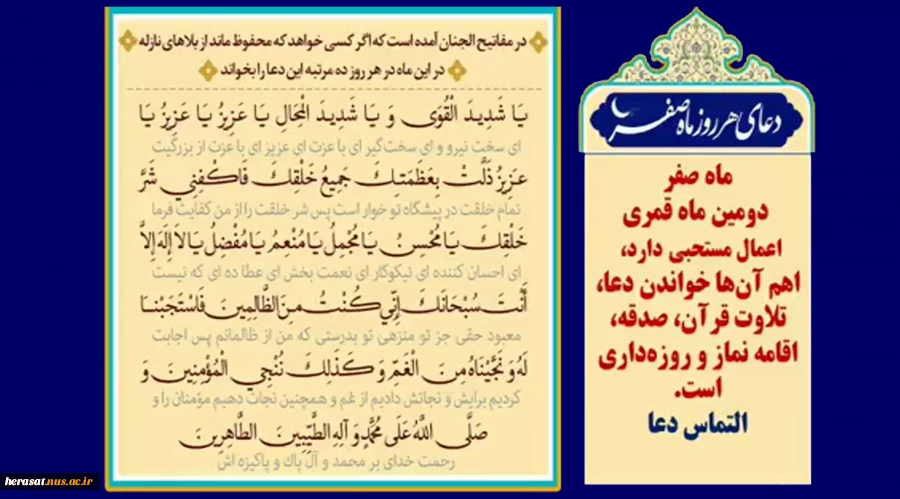 در مفاتیح الجنان آمده است که اگر کسی خواهد که محفوظ ماند از بلاهای نازله
در این ماه در هر روز ده مرتبه این دعا را بخواند
يَا شَدِيدَ الْقُوَى وَ يَا شَدِيدَ الْمِحَالِ يَا عَزِيزُ يَا عَزِيزُ يَا
ای سخت نیرو و ای سخت گیر ای با عزت ای عزیز ای با عزت از بزرگیت
عَزِيزُ ذَلَّتْ بِعَظَمَتِكَ جَمِيعُ خَلْقِكَ فَاكْفِنِي شَرَّ
تمام خلقت در پیشگاه تو خوار است پس شر خلقت را از من کفایت فرما
خَلْقِكَ يَا مُحْسِنُ يَا مُجْمِلُ يَا مُنْعِمُ يَا مُفْضِلُ يَا لَا إِلَهَ إِلَّا
ای احسان کننده ای نیکوکار ای نعمت بخش ای عطا ده ای که نیست
أَنْتَ سُبْحَانَكَ إِنِّي كُنْتُ مِنَ الظَّالِمِينَ فَاسْتَجَبْنَا
معبود حقی جز تو منزهی تو بدرستی که من از ظالمانم پس اجابت
لَهُ وَ نَجَّيْنَاهُ مِنَ الْغَمِّ وَ كَذَلِكَ نُنْجِي الْمُؤْمِنِينَ وَ
کردیم برایش و نجاتش دادیم از غم و همچنین نجات دهیم مؤمنان را و
صَلَّى اللَّهُ عَلَى مُحَمَّدٍ وَ آلِهِ الطَّيِّبِينَ الطَّاهِرِينَ
رحمت خدای بر محمد و آل پاك و پاکیزه اش
دعای هر روز ماه صفر
ماه صفر
دومین ماه قمری
اعمال مستحبی دارد،
اهم آن‌ها خواندن دعا،
تلاوت قرآن، صدقه،
اقامه نماز و روزه‌داری
است.
التماس دعا
herasat.nus.ac.ir